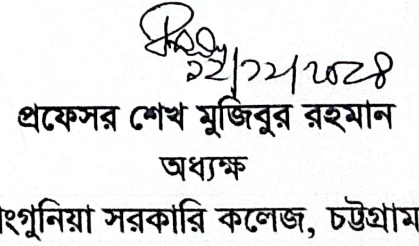 ১২/১২/২০২৪
প্রফেসর শেখ মুজিবুর রহমান
অধ্যক্ষ
ংগুনিয়া সরকারি কলেজ, চট্টগ্রাম